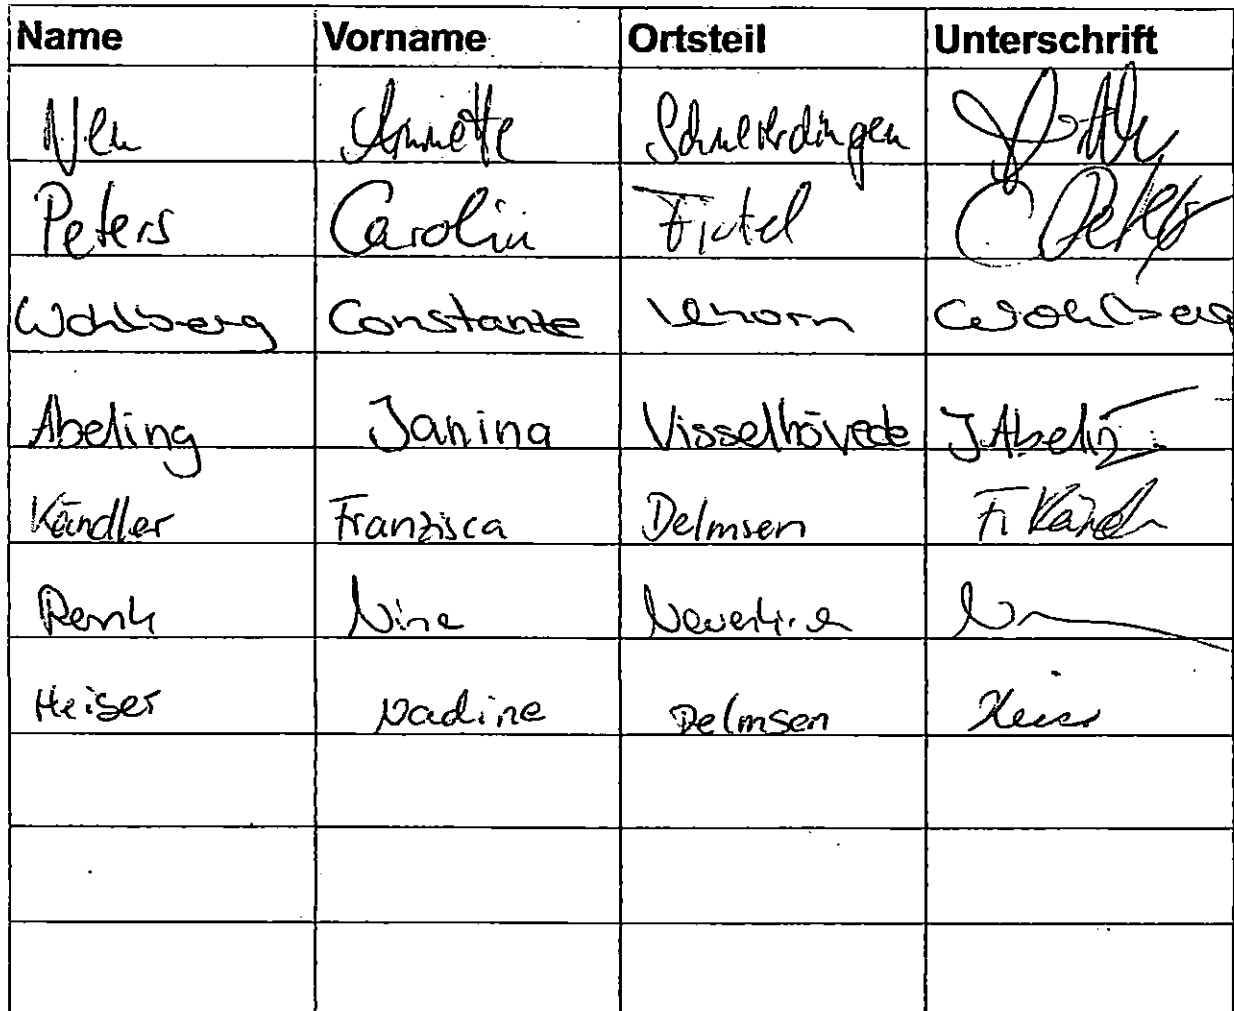 Name Vorname Ortsteil Unterschrift
Annette Schneverdingen
Peters Carolin Fintel C Peters
Wohlberg Constanze CWohlberg
Abeling Janina Visselhövede J Abeling
Kändler Franzisca Delmsen F. Kändler
Nina Neuenkirchen
Heiser Nadine Delmsen Heiser